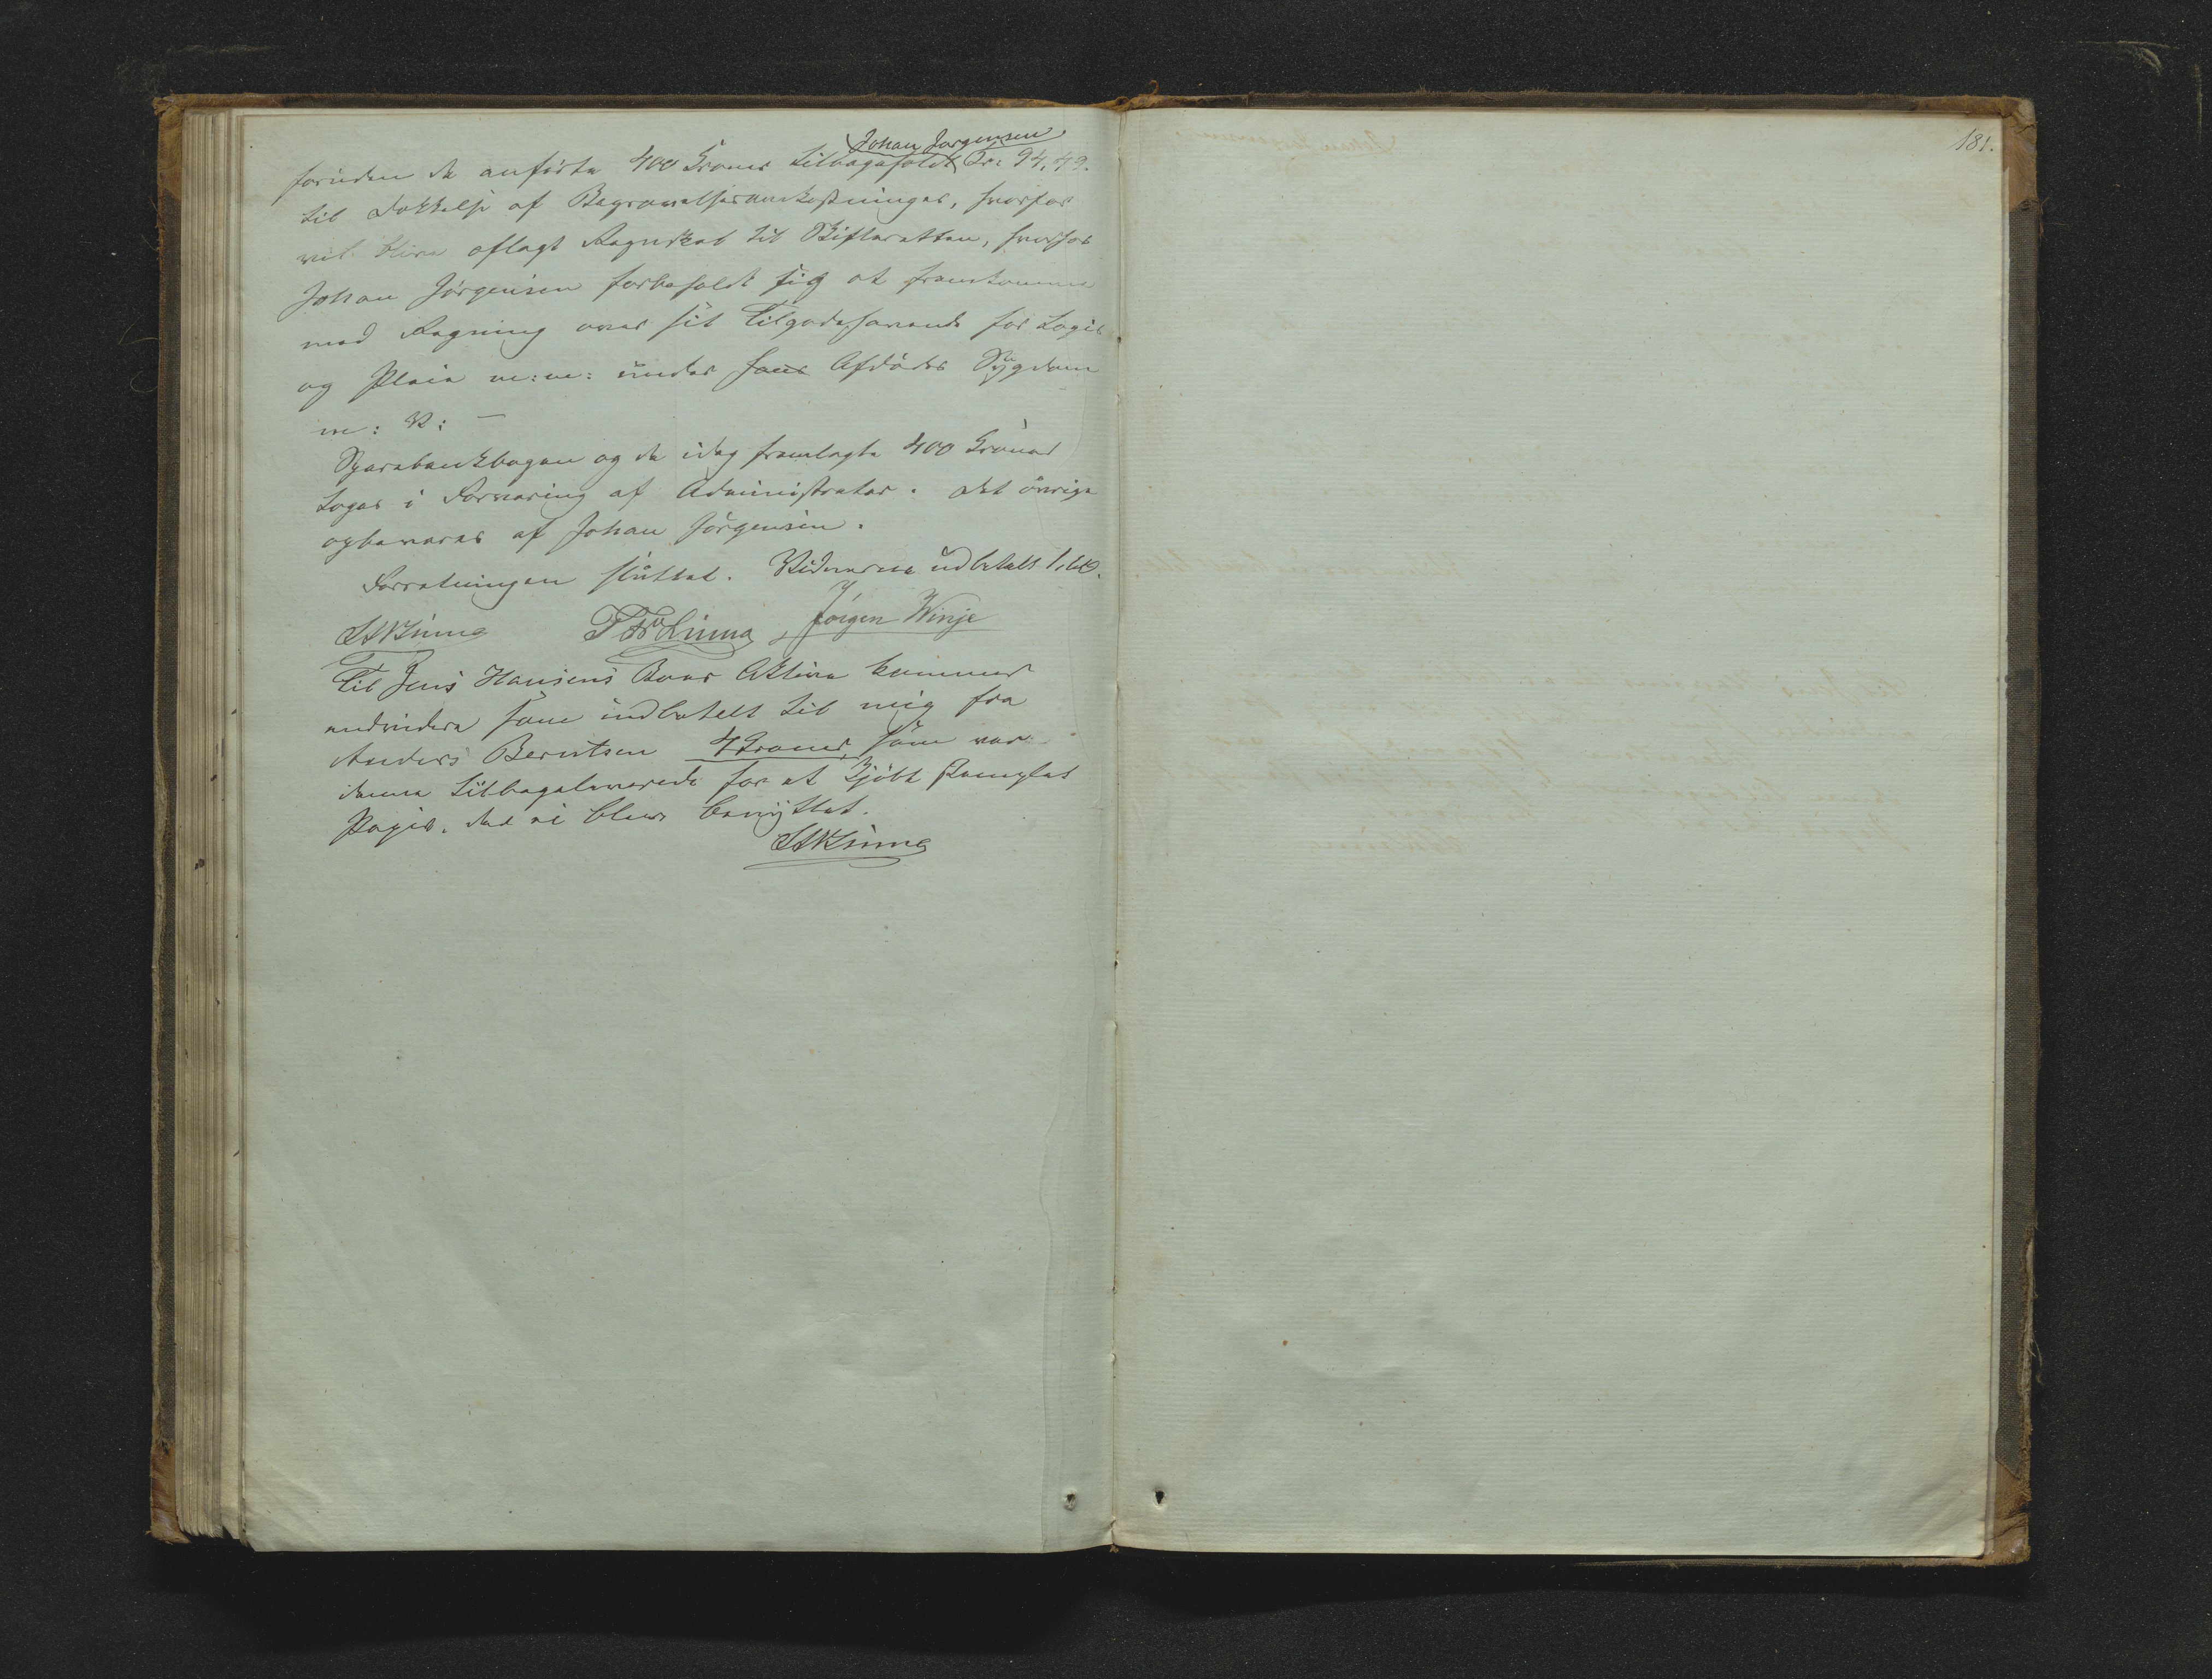 Johan Jørgensen
foruden de anførte 400 Kroner tilbageholdt Kr: 94,49.
til Dækkelse af Begravelsesomkostninger, hvorfor
vil blive aflagt Regnskab til Skifteretten, hvorhos
Johan Jørgensen forbeholdt sig at fremkomme
med Regning over sit Tilgodehavende for Logis
og Pleie m:m: under hans Afdødes Sygdom
m: V: —
Sparebankbogen og de idag fremlagte 400 Kroner
toges i Forvaring af Administrator. Det øvrige
opbevares af Johan Jørgensen.
Forretningen sluttet. Vidnerne udbetalt 1,60.
Linna Jørgen Winje
Til Jens Hansens Boes Aktiva kommer
endvidere som indbetalt til mig fra
Anders Berntsen 4 Kroner, som var
denne tilbageleverede for et kjøbt Stemplet
Papir, der ei blev benyttet.
181.